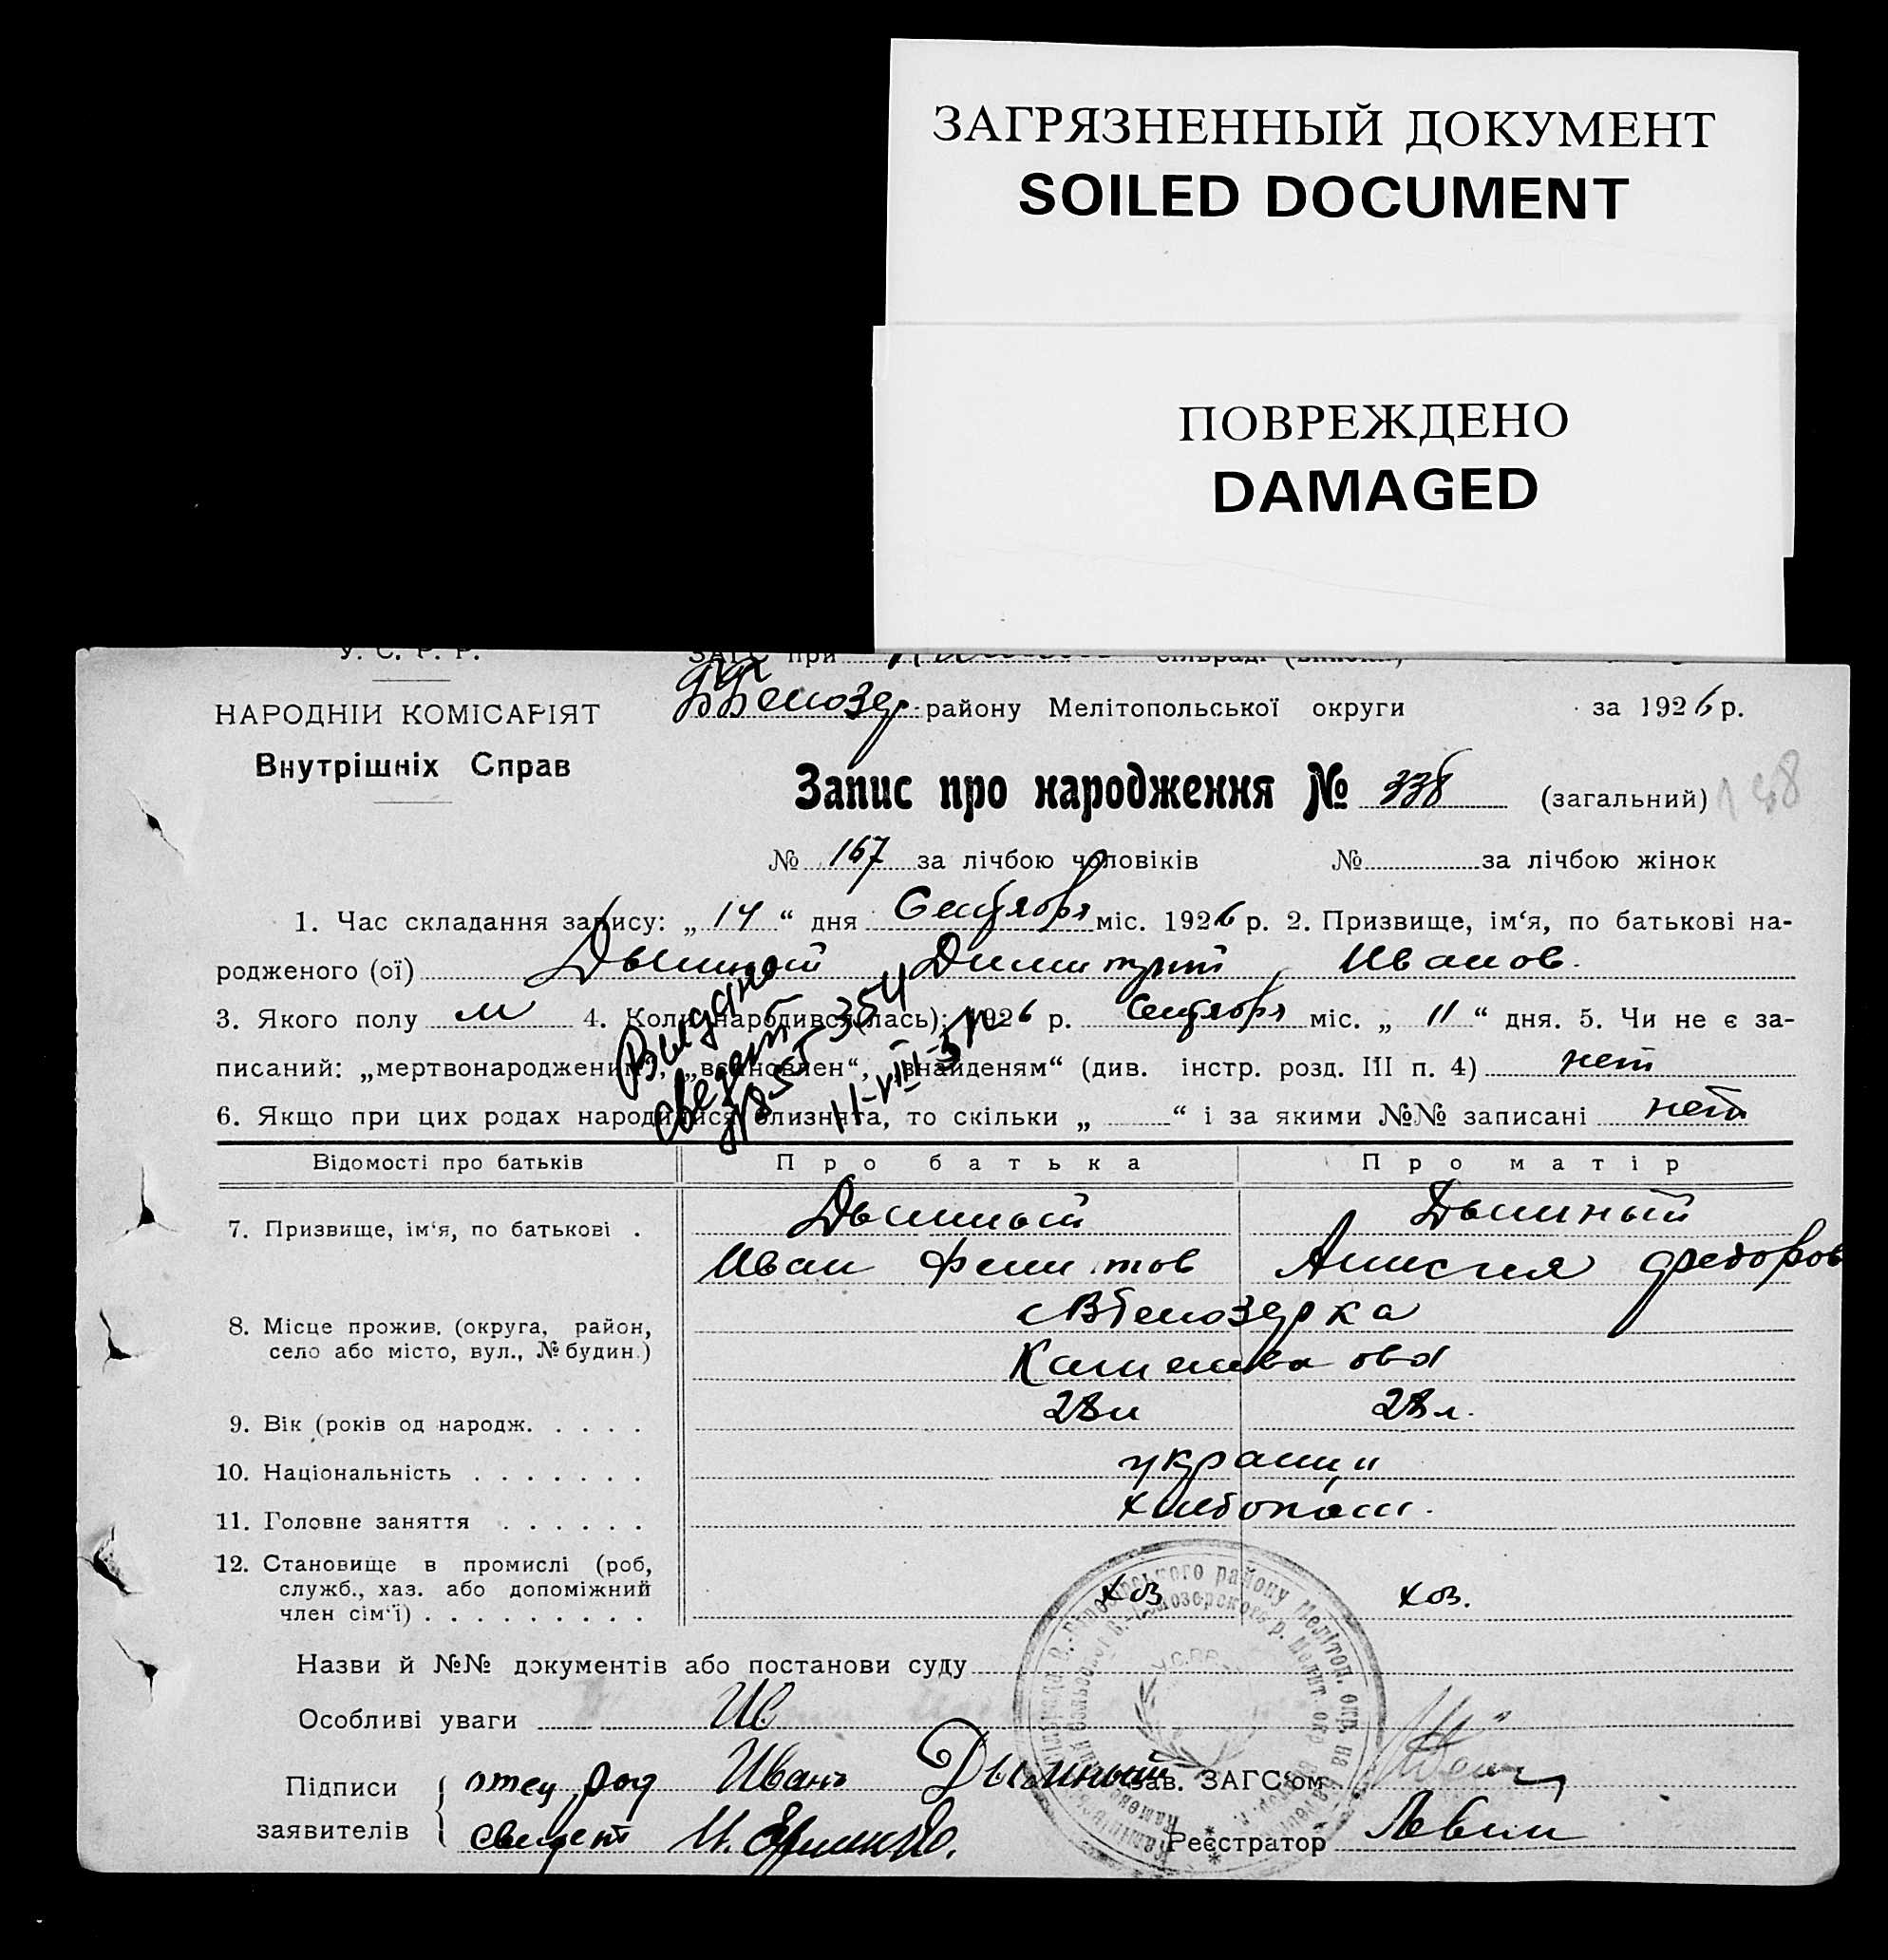 ЗАГРЯЗНЕННЫЙ ДОКУМЕНТ
SOILED DOCUMENT
ПОВРЕЖДЕНО
DAMAGED
У. С. Р. Р. ЗАГС при
НАРОДНІЙ КОМІСАРІЯТ
Белозер. району Мелітопольської округи за 1926 р.
Внутрішніх Справ
Запис про народження № 338 (загальний)
№ 167 за лічбою чоловіків № за лічбою жінок
1. Час складання запису: „14“ дня Сентября міс. 1926 р. 2. Призвище, ім‘я, по батькові на-
родженого (ої) Дымный Димитрий Иванов.
3. Якого полу м 4. Коли народився(лась): 1926 р. Сентября міс. „11“ дня. 5. Чи не є за-
писаний: „мертвонародженим“, „встановлен“, „знайденям“ (див. інстр. розд. III п. 4) нет
6. Якщо при цих родах народилися близнята, то скільки „ “ і за якими №№ записані нет
Выдано
свидет
11-VIII-
Відомості про батьків Про батька Про матір
Дымный Дымный
7. Призвище, ім‘я, по батькові .
Иван Филитов Анисия Федоров
8. Місце прожив. (округа, район, Вбелозерка
село або місто, вул., № будин.)
9. Вік (років од народж. . . . . 28л 28л.
10. Національність . . . . . . . украинц
11. Головне заняття . . . . . . хлебопаш.
12. Становище в промислі (роб,
служб., хаз. або допоміжний хоз хоз.
член сім‘ї) . . . . . . . . .
Назви й №№ документів або постанови суду
Особливі уваги
Підписи отец род Иванъ Дымный Зав. ЗАГС‘ом
заявителів свидет Реєстратор Левин